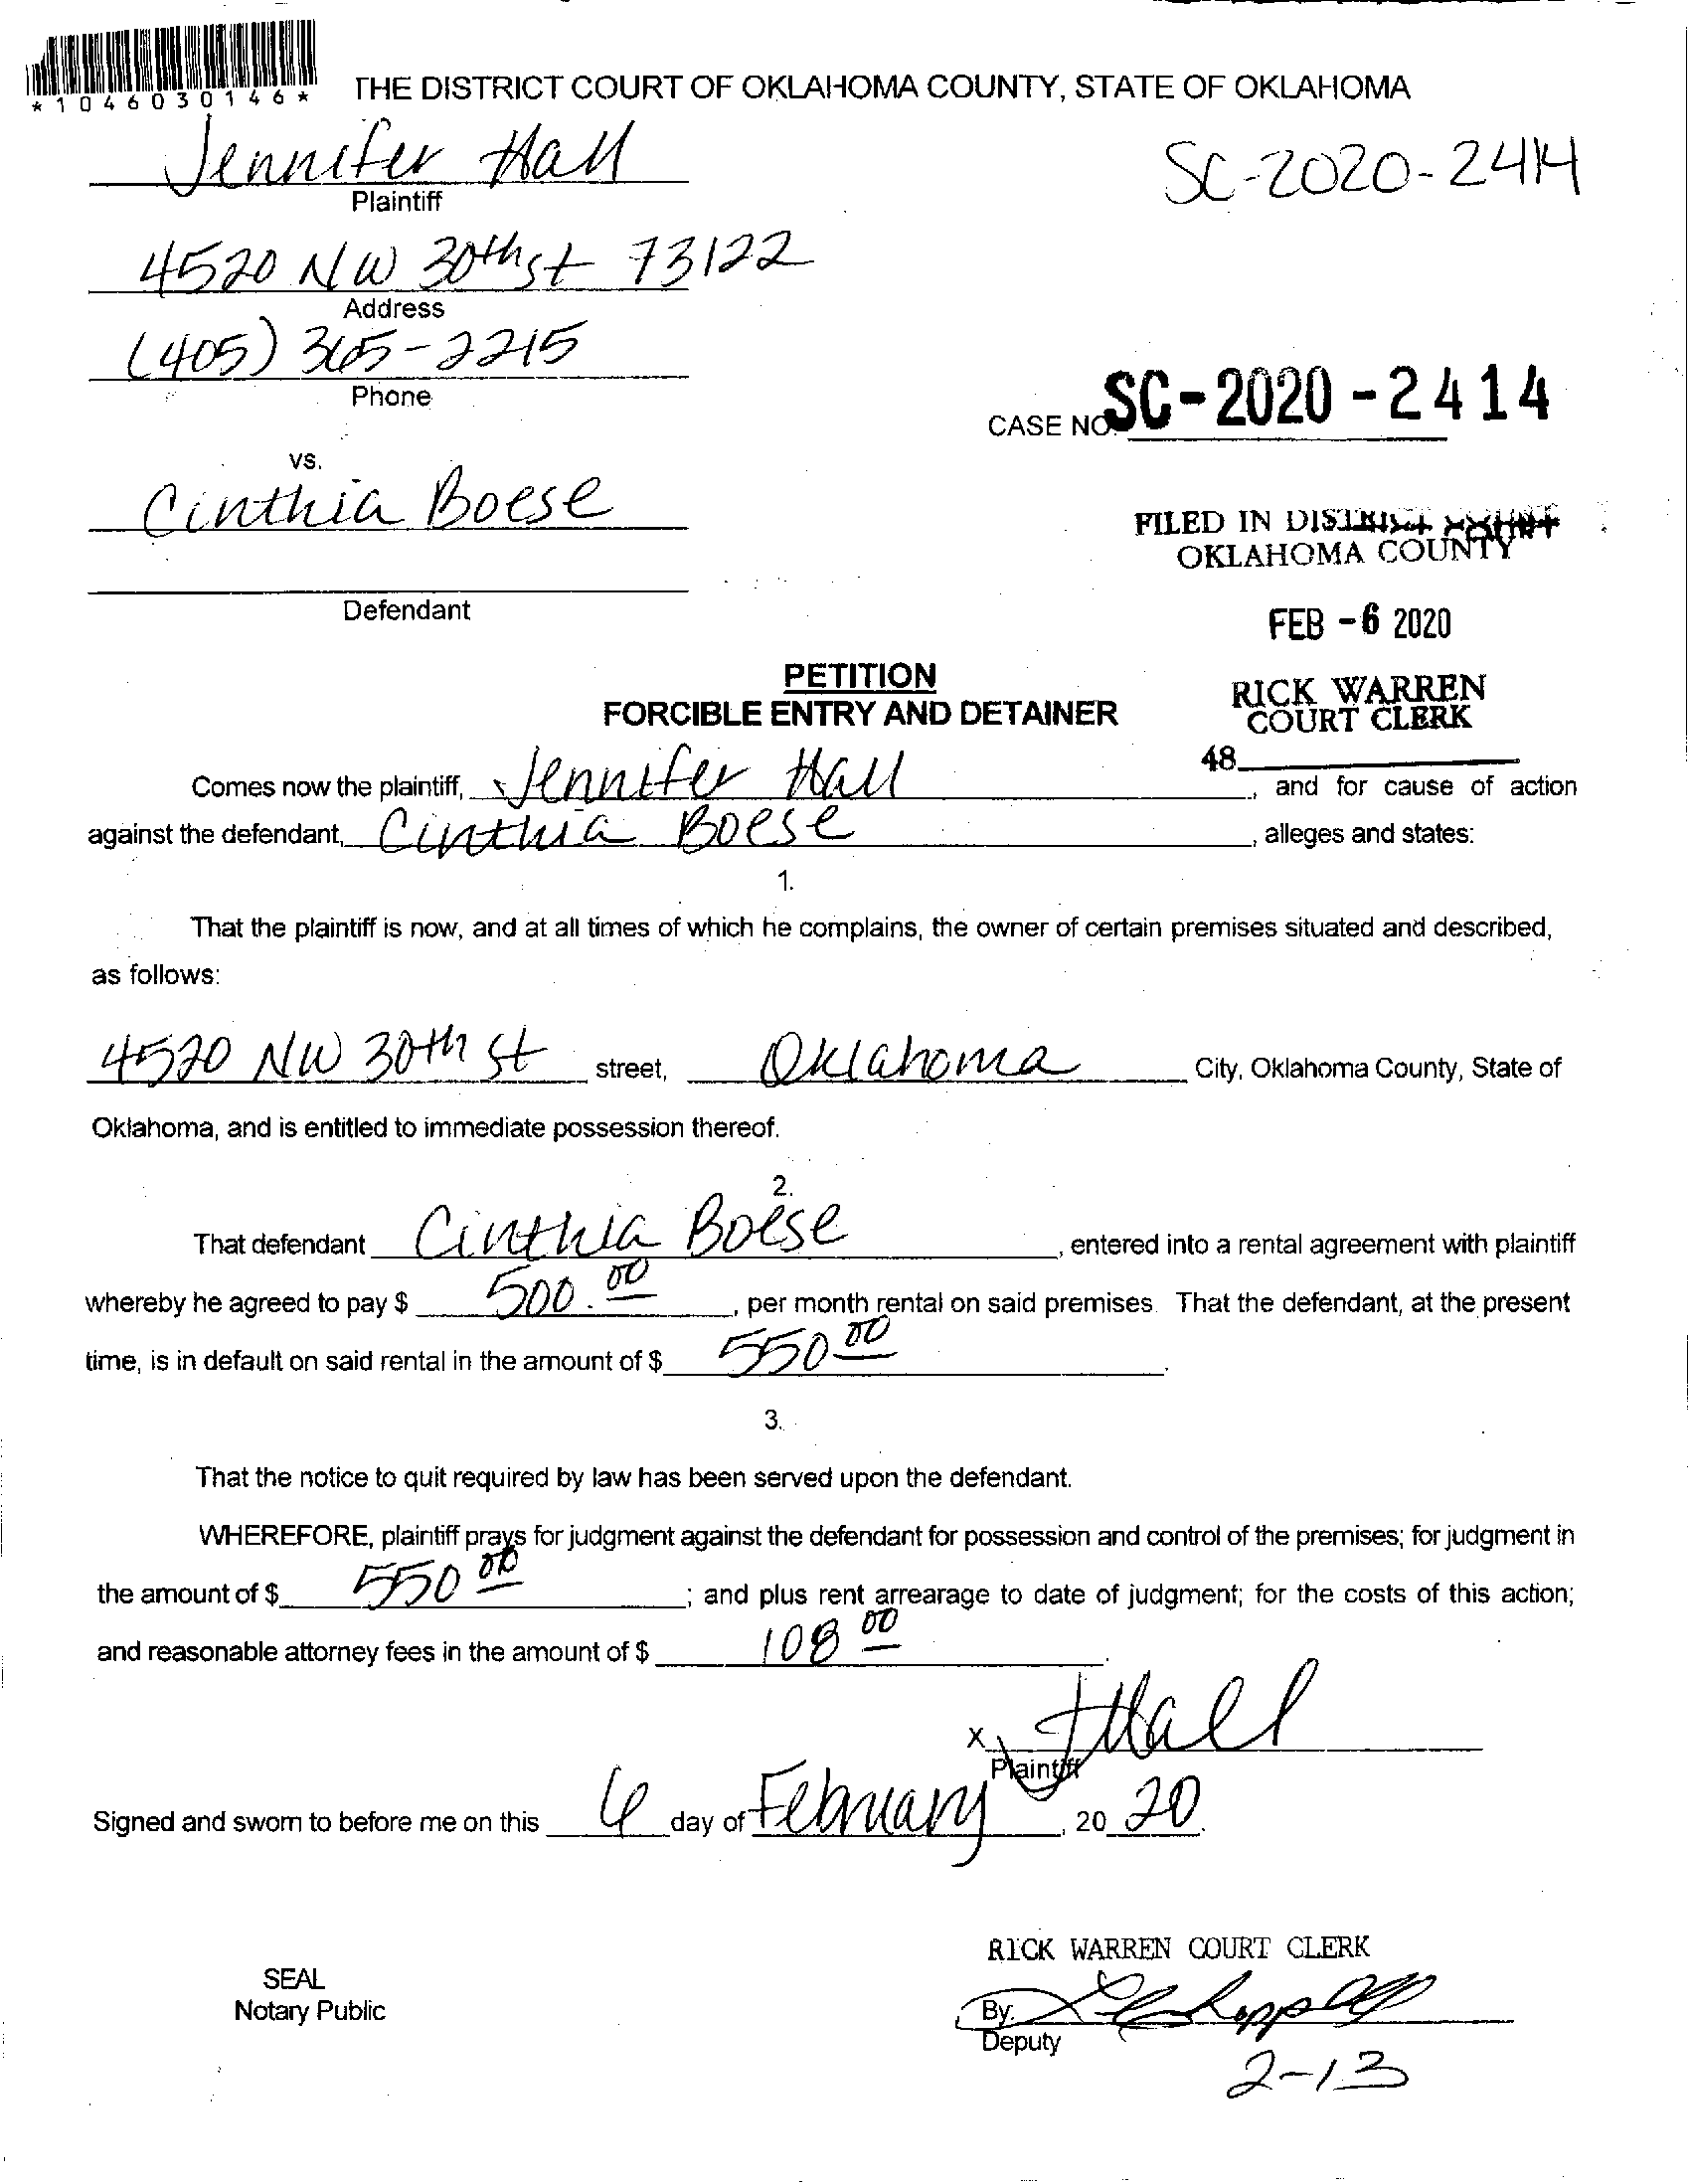 *1046030146*
THE DISTRICT COURT OF OKLAHOMA COUNTY, STATE OF OKLAHOMA
Jennifer Hall
Plaintiff
SC-2020-2414
4520 NW 30th st 73122
Address
(405) 365-2215
Phone
CASE NO. SC-2020-2414
vs.
Cinthia Boese
Defendant
FILED IN DISTRICT COURT
OKLAHOMA COUNTY
FEB -6 2020
RICK WARREN
COURT CLERK
48
PETITION
FORCIBLE ENTRY AND DETAINER
Comes now the plaintiff, Jennifer Hall, and for cause of action
against the defendant, Cinthia Boese, alleges and states:
1.
That the plaintiff is now, and at all times of which he complains, the owner of certain premises situated and described,
as follows:
4520 NW 30th St street, Oklahoma City, Oklahoma County, State of
Oklahoma, and is entitled to immediate possession thereof.
2.
That defendant Cinthia Boese, entered into a rental agreement with plaintiff
whereby he agreed to pay $ 500.00, per month rental on said premises. That the defendant, at the present
time, is in default on said rental in the amount of $ 550 00.
3.
That the notice to quit required by law has been served upon the defendant.
WHEREFORE, plaintiff prays for judgment against the defendant for possession and control of the premises; for judgment in
the amount of $ 550 00; and plus rent arrearage to date of judgment; for the costs of this action;
and reasonable attorney fees in the amount of $ 108 00.
X JHall
Plaintiff
Signed and sworn to before me on this 6 day of February, 20 20.
RICK WARREN COURT CLERK
SEAL
Notary Public
By:
Deputy
2-13